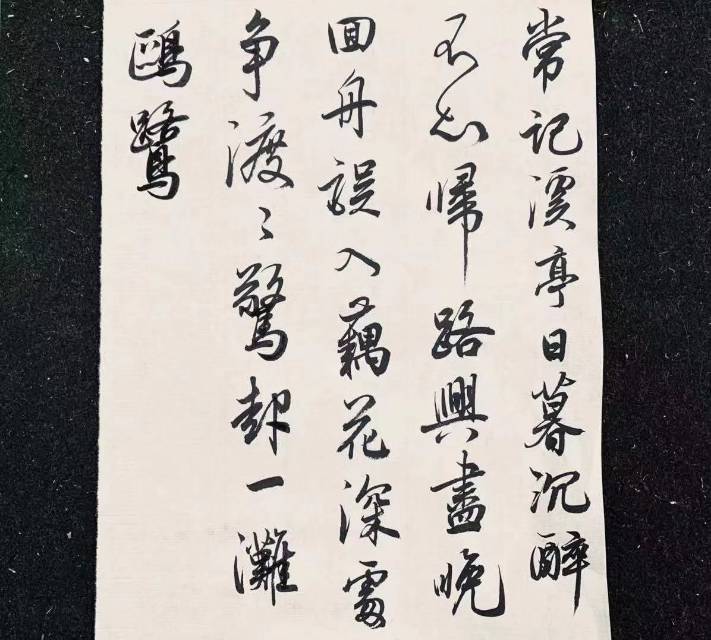 常记溪亭日暮沉醉
不知歸路興盡晚
回舟誤入藕花深處
争渡〻驚起一灘
鷗鷺